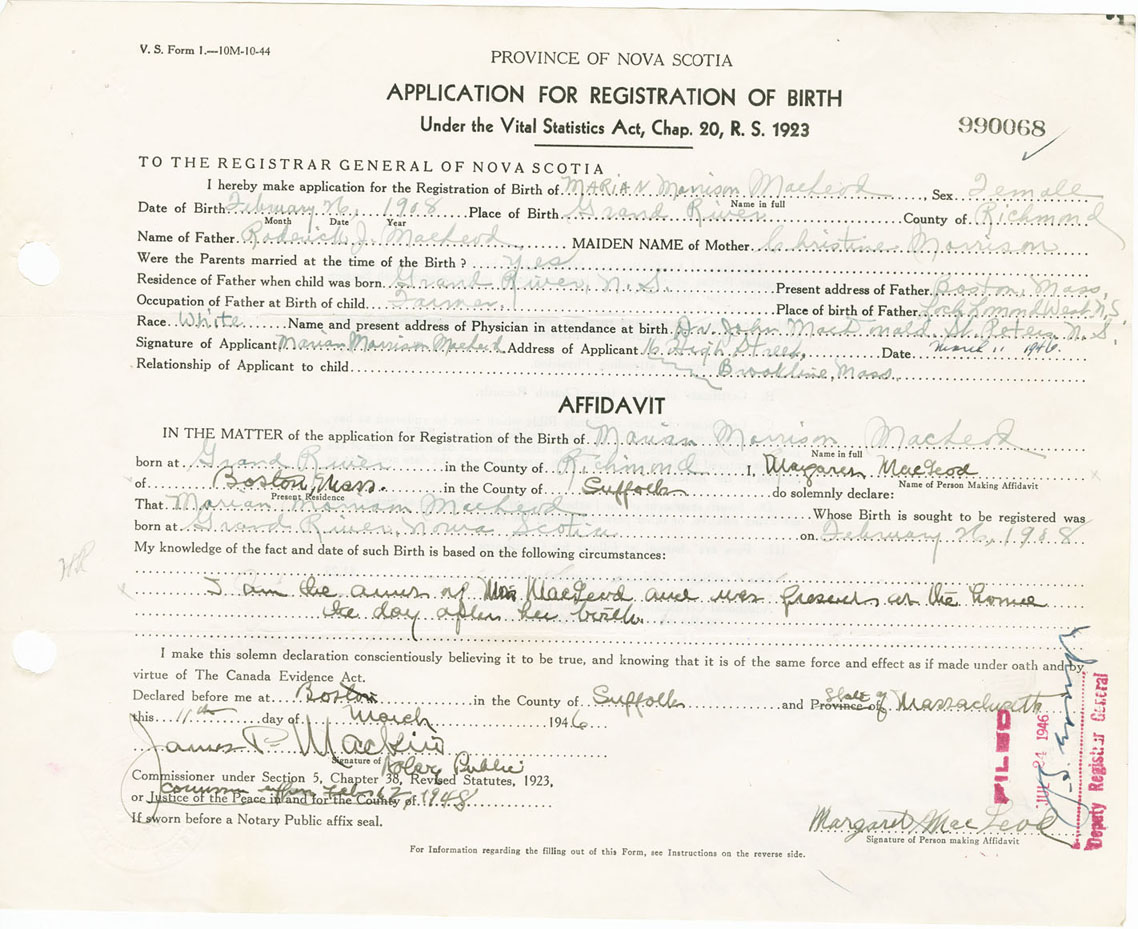 V. S. Form 1.—10M-10-44
PROVINCE OF NOVA SCOTIA
APPLICATION FOR REGISTRATION OF BIRTH
Under the Vital Statistics Act, Chap. 20, R. S. 1923
990068
TO THE REGISTRAR GENERAL OF NOVA SCOTIA
I hereby make application for the Registration of Birth of MARIAN Morrison MacLeod, Sex Female
Name in full
Date of Birth February 26, 1908 Place of Birth Grand River County of Richmond
Month Date Year
Name of Father Roderick J. MacLeod MAIDEN NAME of Mother Christine Morrison
Were the Parents married at the time of the Birth? yes
Residence of Father when child was born Grand River, N. S. Present address of Father Boston, Mass.
Occupation of Father at Birth of child Farmer. Place of birth of Father Loch Lomond West N.S.
Race White Name and present address of Physician in attendance at birth Dr. John MacDonald St. Peters N. S.
Signature of Applicant Marian Morrison MacLeod Address of Applicant 16 High Street, Date March 11 1946.
Relationship of Applicant to child Brookline, Mass.
AFFIDAVIT
IN THE MATTER of the application for Registration of the Birth of Marian Morrison MacLeod
Name in full
born at Grand River in the County of Richmond I, Margaret MacLeod
Name of Person Making Affidavit
of Boston, Mass. in the County of Suffolk do solemnly declare:
Present Residence
That Marian Morrison MacLeod Whose Birth is sought to be registered was
born at Grand River, Nova Scotia on February 26, 1908
My knowledge of the fact and date of such Birth is based on the following circumstances:
I am the aunt of Miss MacLeod and was present at the home
the day after her birth.
I make this solemn declaration conscientiously believing it to be true, and knowing that it is of the same force and effect as if made under oath and by
virtue of The Canada Evidence Act.
Declared before me at Boston in the County of Suffolk and Province of State of Massachusetts
this 11th day of March 1946
James P.
Signature of Notary Public
Commissioner under Section 5, Chapter 38, Revised Statutes, 1923,
or Justice of the Peace in and for the County of
Feb 12 1948
If sworn before a Notary Public affix seal.
Margaret MacLeod
Signature of Person making Affidavit
For Information regarding the filling out of this Form, see Instructions on the reverse side.
FILED
24 1946
Deputy Registrar General